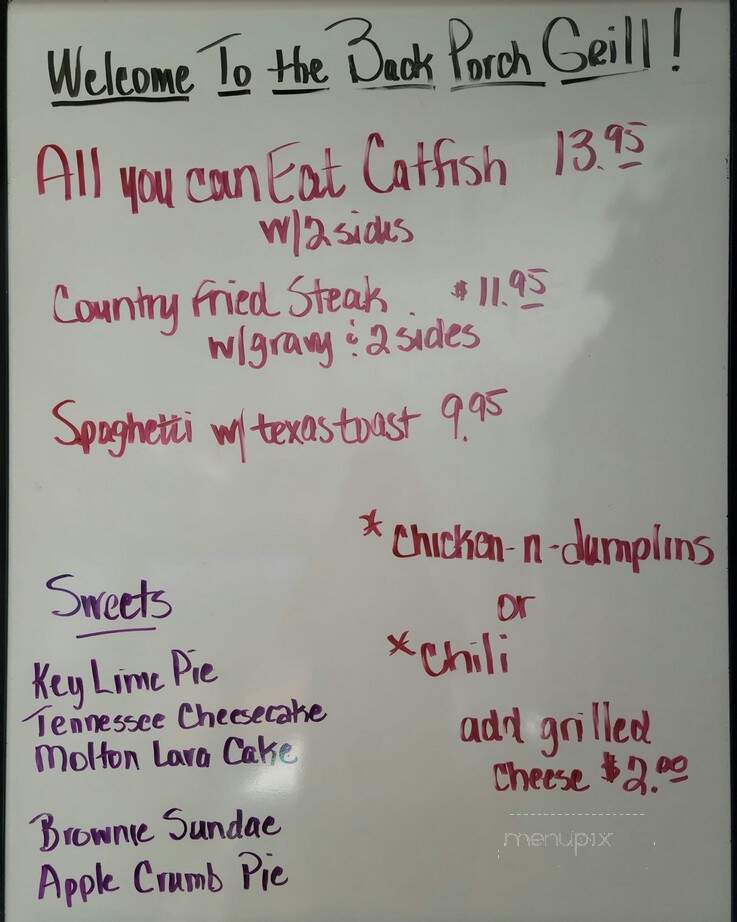 Welcome To the Back Porch Grill!
All you can Eat Catfish 13.95
w/2 sides
Country Fried Steak $11.95
w/gravy & 2 sides
Spaghetti w/ texas toast 9.95
* Chicken-n-dumplins
or
* Chili
add grilled
cheese $2.00
Sweets
Key Lime Pie
Tennessee Cheesecake
Molton Lava Cake
Brownie Sundae
Apple Crumb Pie
menupix